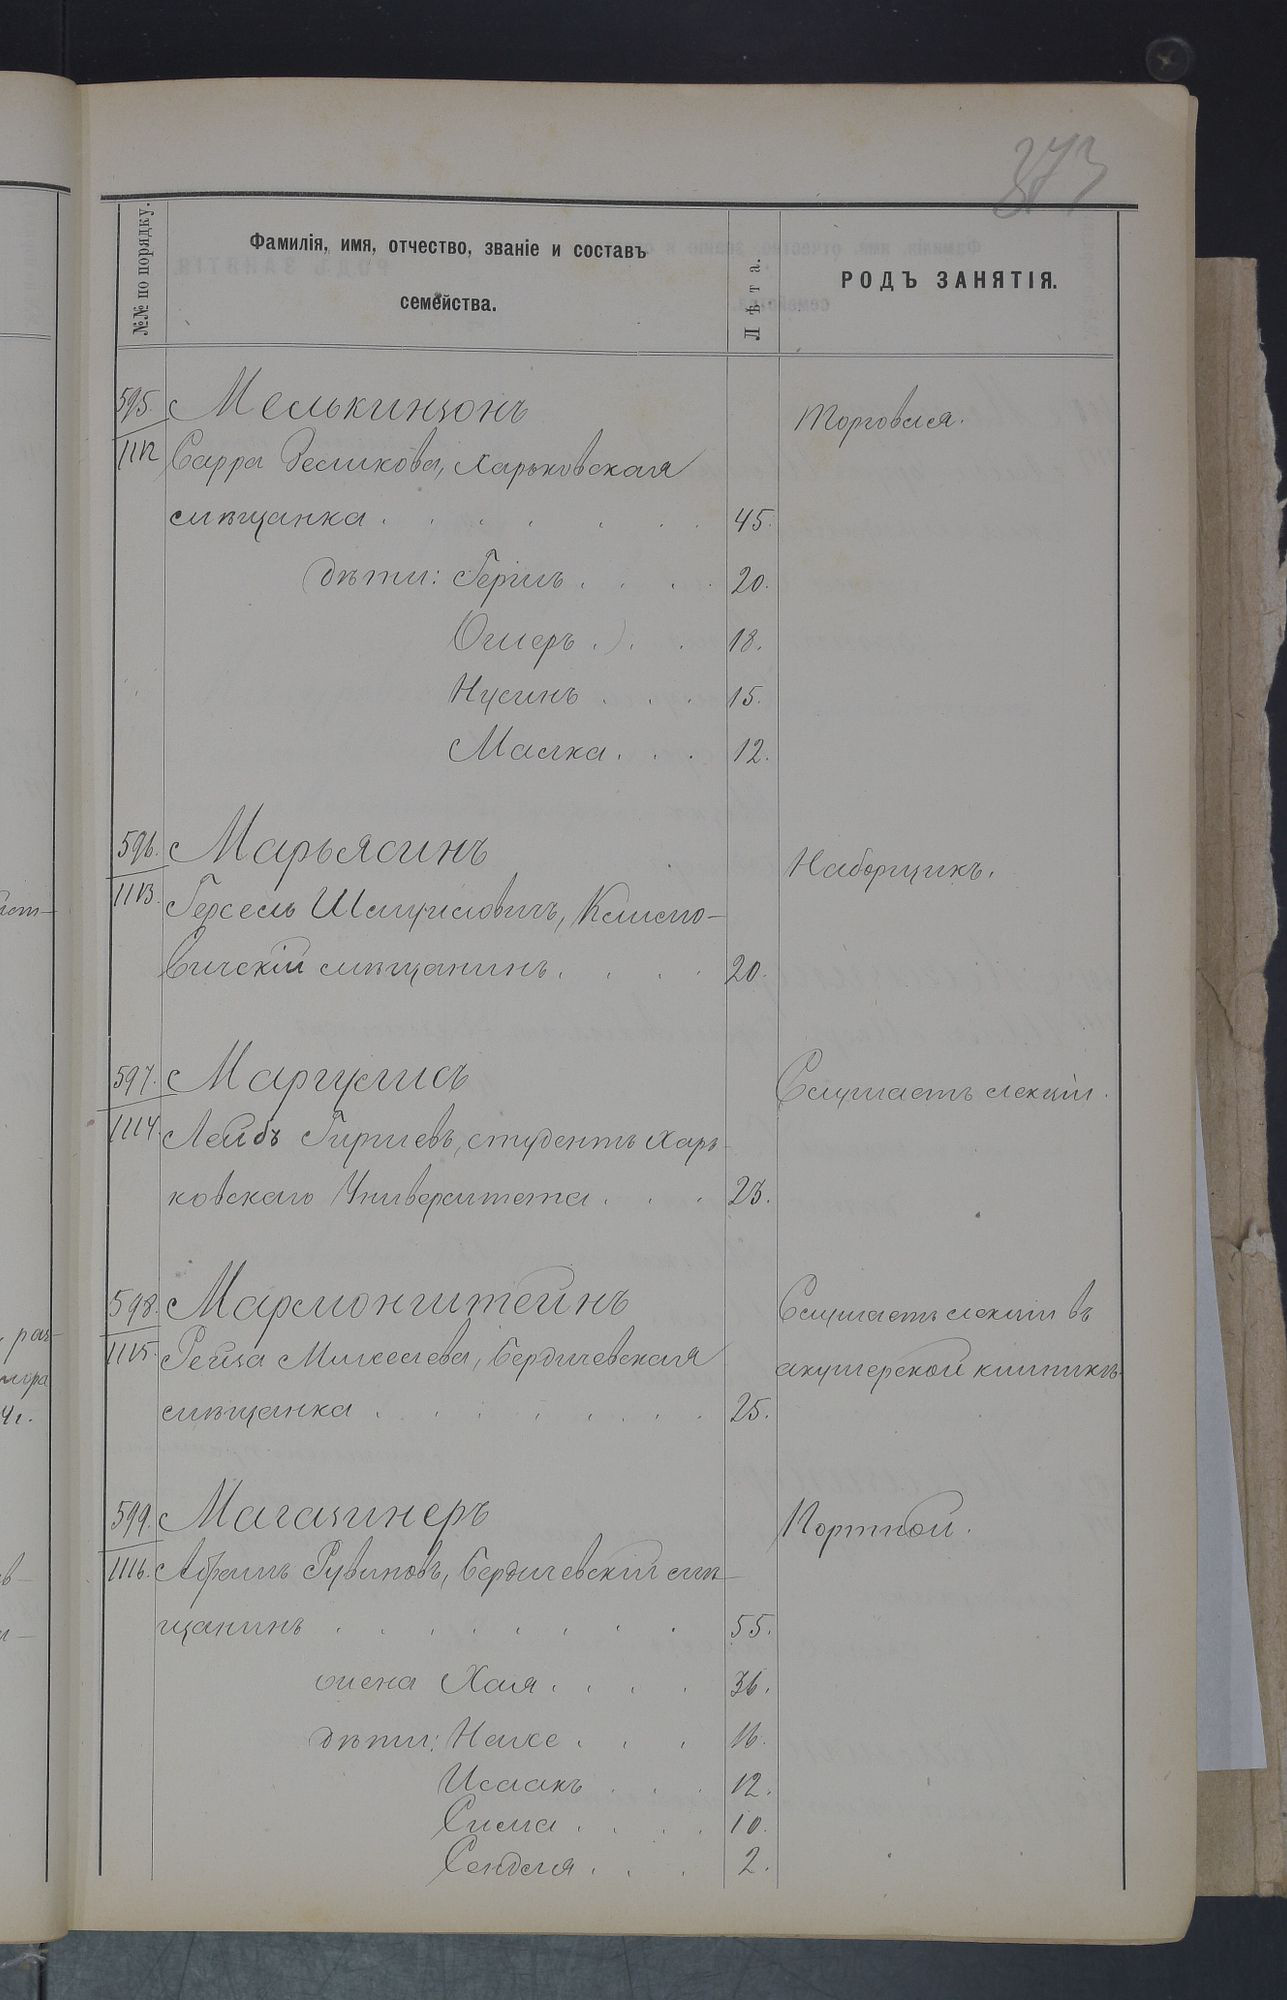 373
№№ по порядку.
Фамилія, имя, отчество, званіе и составъ
семейства.
Лѣта.
РОДЪ ЗАНЯТІЯ.
595. Мелькинзонъ Торговля.
1112 Сарра Зеликова, Харьковская
мѣщанка 45.
дѣти: Гершъ 20.
Ошеръ 18.
Нусинъ 15.
Малка 12.
596. Марьясинъ Наборщикъ.
1113. Герсель Шмуиловичъ, Климо-
вичскій мѣщанинъ 20.
597. Маргулисъ Слушаетъ лекціи.
1114. Лейбъ Гиршевъ, студентъ Харь-
ковскаго Университета 23.
598. Мармонштейнъ Слушаетъ лекціи въ
1115. Рейза Михелева, Бердичевская акушерской клиникѣ
мѣщанка 25.
599. Магазинеръ Портной.
1116. Абрамъ Рувиновъ, Бердичевскій мѣ-
щанинъ 55.
жена Хая 36.
дѣти: 16.
Исаакъ 12.
Сима 10.
Сендля 2.